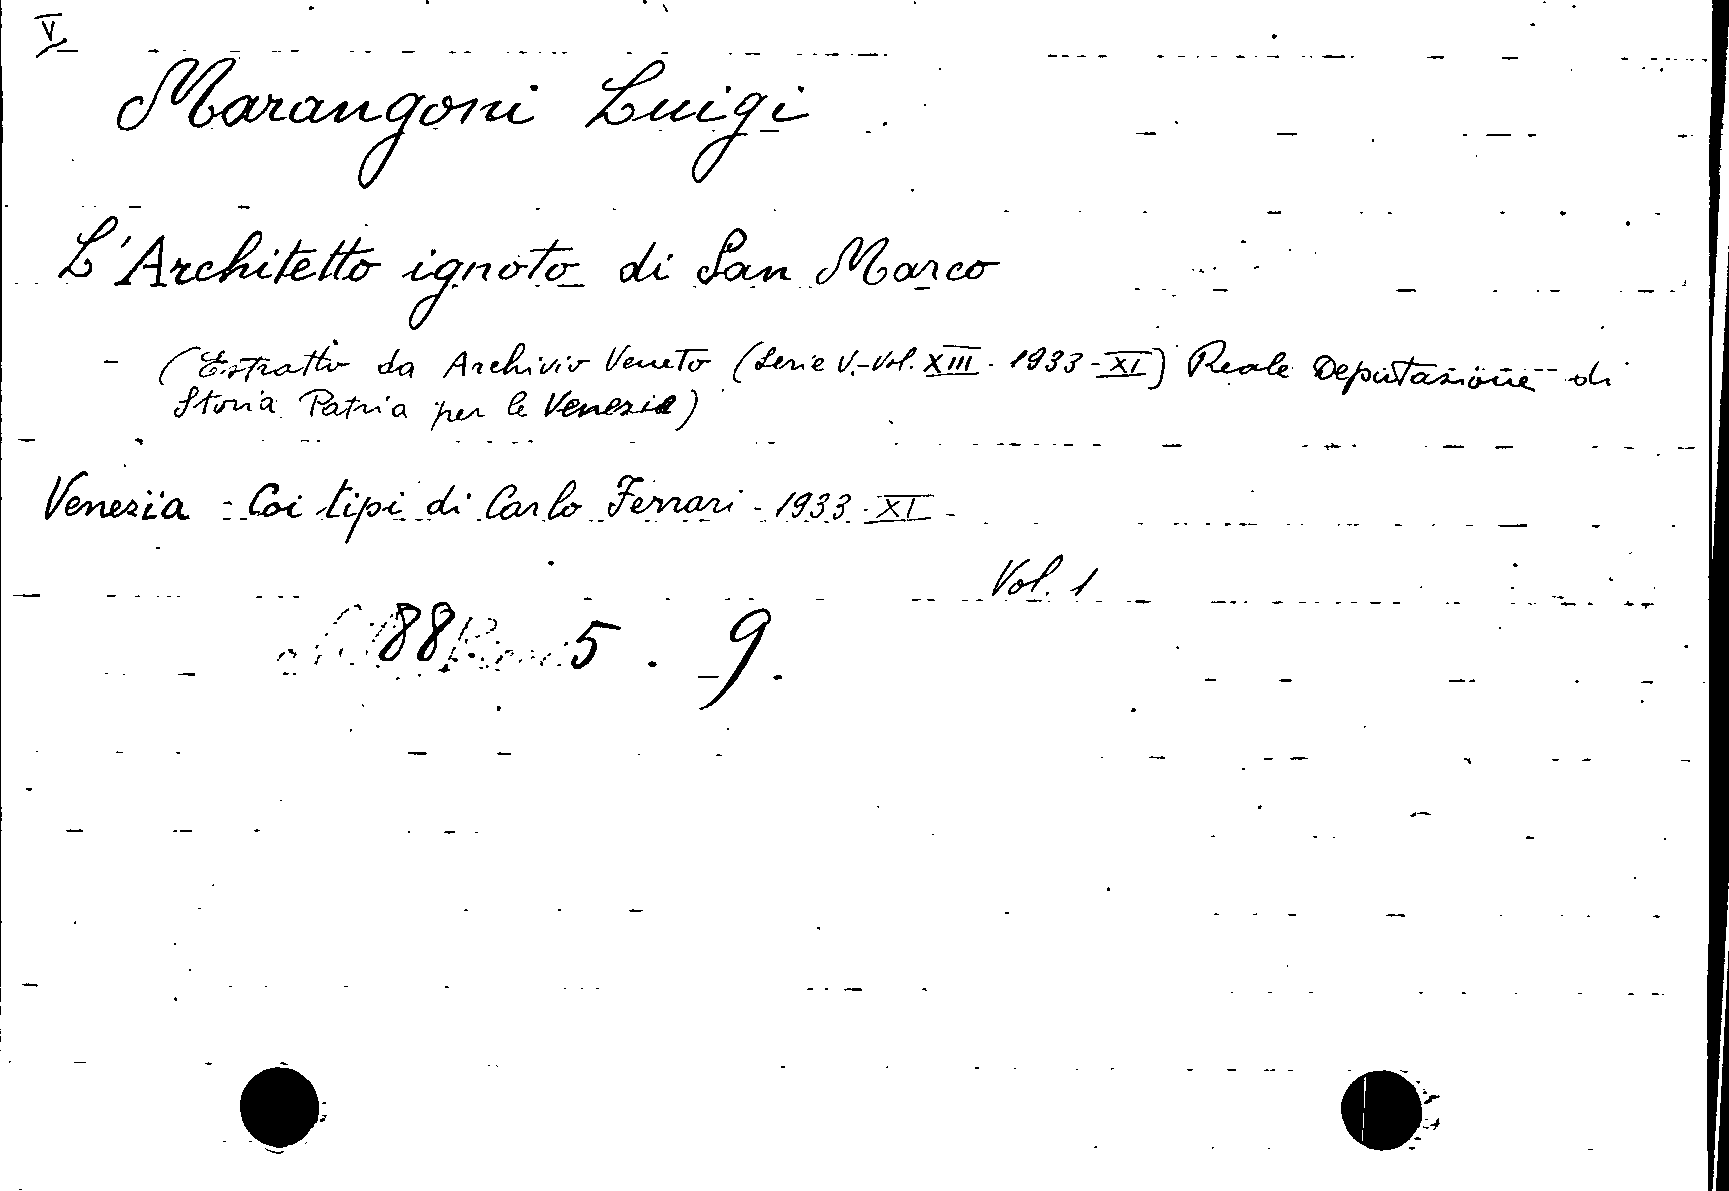 V
Marangoni Luigi
L'Architetto ignoto di San Marco
- (Estratto da Archivio Veneto (Serie V.-Vol. XIII - 1933-XI) Reale Deputazione di
Storia Patria per le Venezie)
Venezia - Coi tipi di Carlo Ferrari - 1933-XI -
Vol. 1
88 5 . 9.